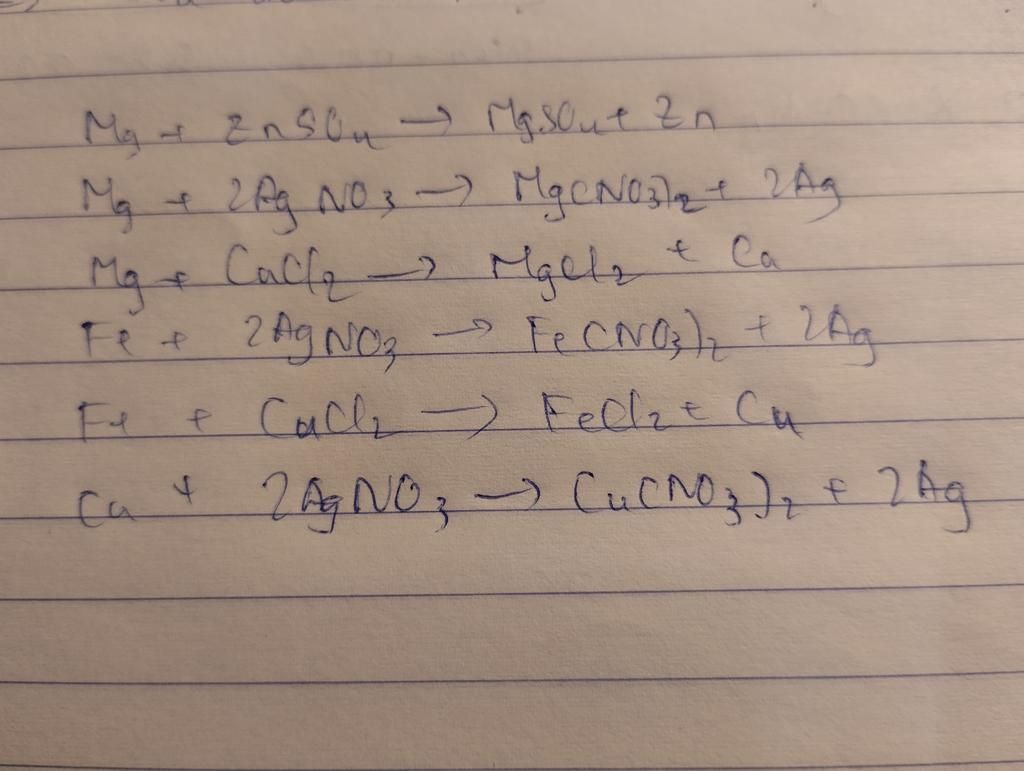 Mg + ZnSO4 → MgSO4 + Zn
Mg + 2AgNO3 → Mg(NO3)2 + 2Ag
Mg + CuCl2 → MgCl2 + Cu
Fe + 2AgNO3 → Fe(NO3)2 + 2Ag
Fe + CuCl2 → FeCl2 + Cu
Cu + 2AgNO3 → Cu(NO3)2 + 2Ag